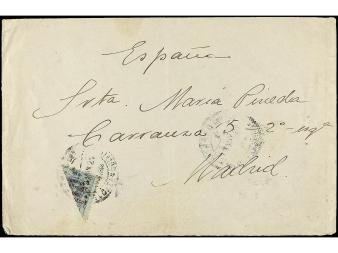 España
Srta. María Pineda
Carranza 5 2º izqª
Madrid.